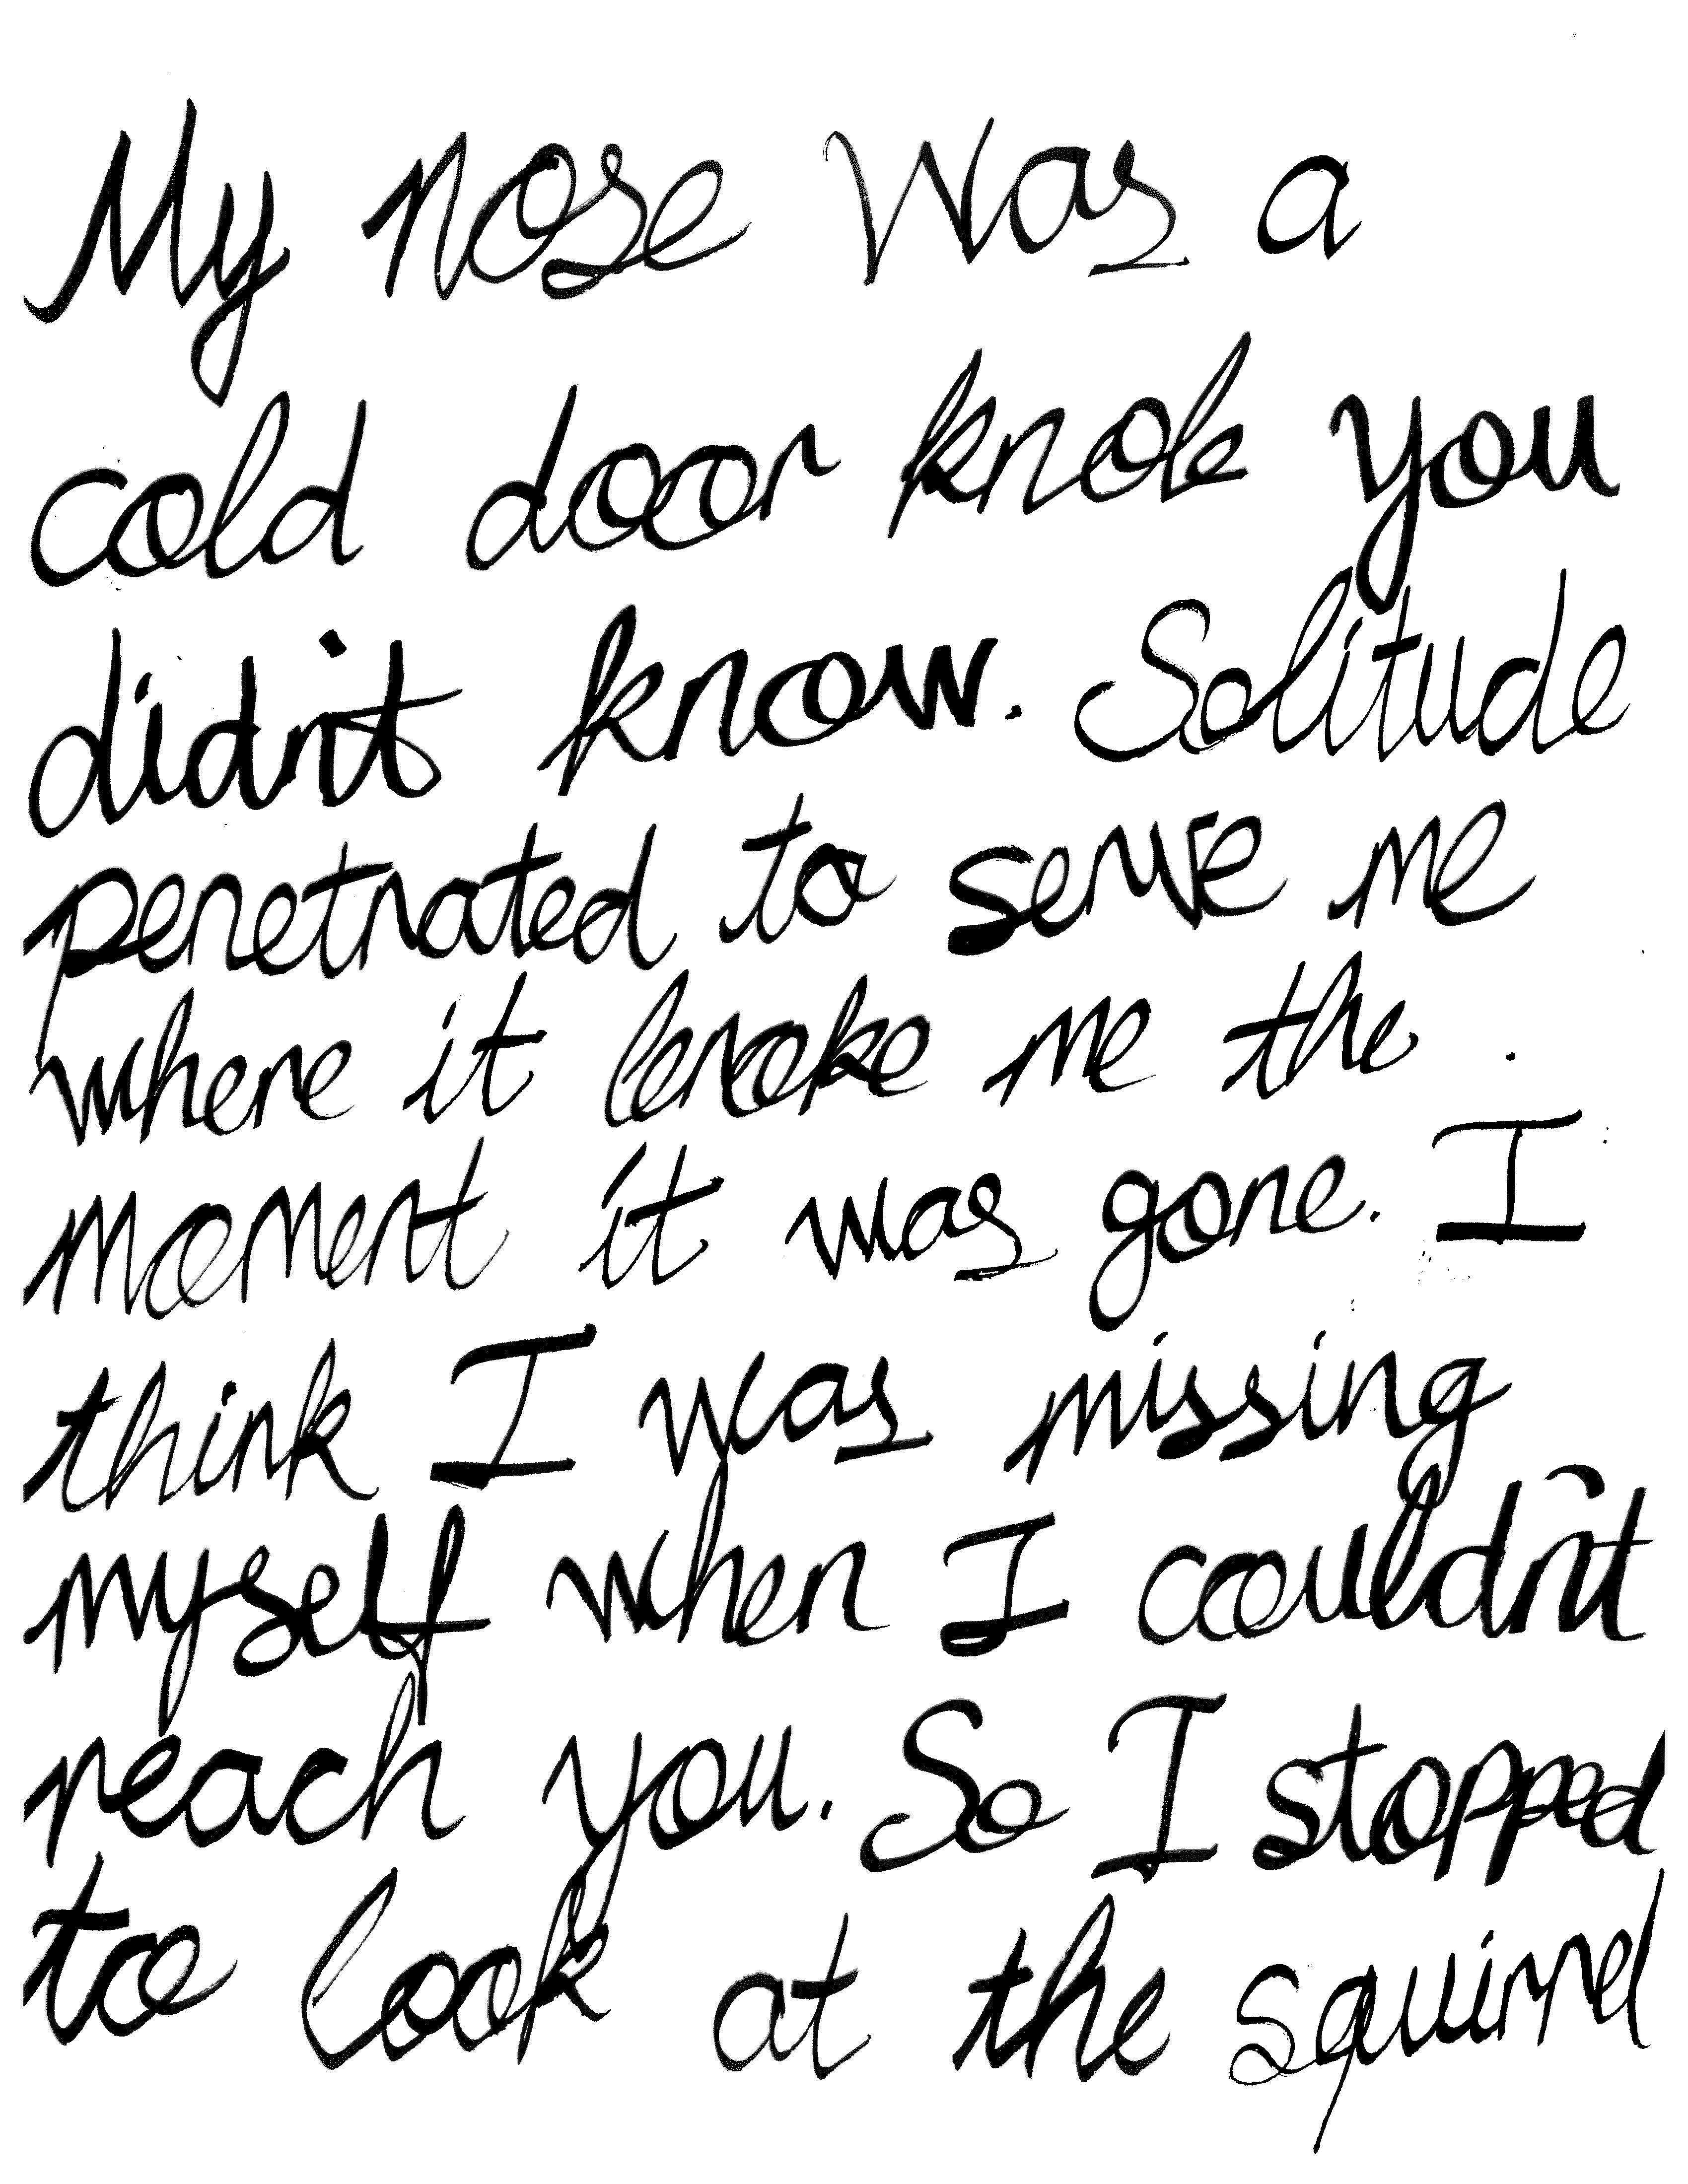 My nose was a
cold door knob you
didn't know. Solitude
penetrated to serve me
where it broke me the
moment it was gone. I
think I was missing
myself when I couldn't
reach you. So I stopped
to look at the squirrel